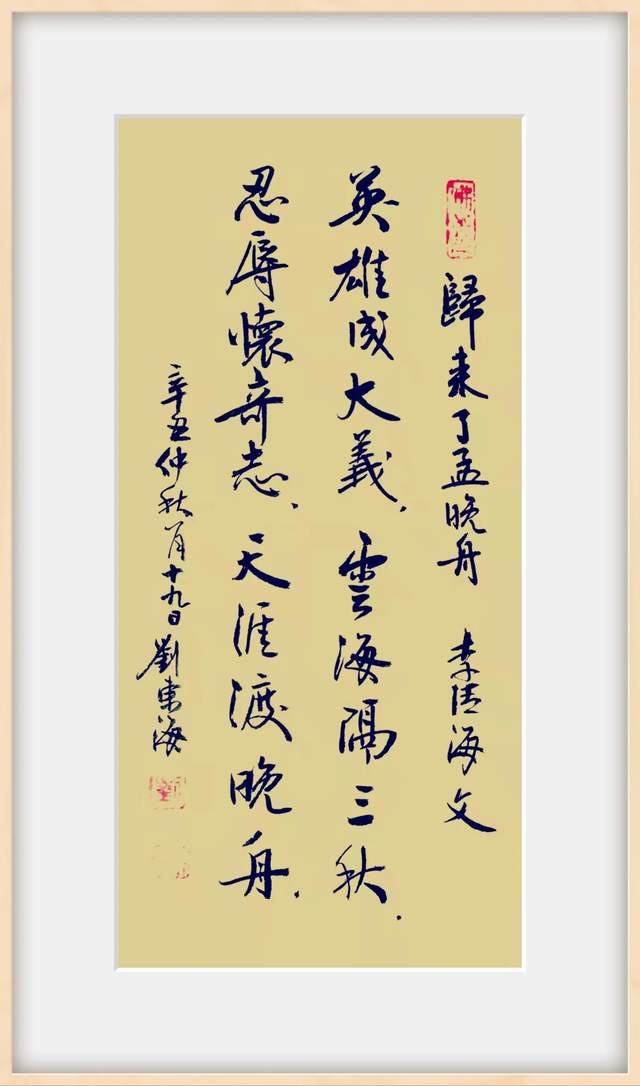 歸来了孟晚舟 李清海文
英雄成大義，雲海隔三秋．
忍辱懷奇志、天涯渡晚舟．
辛丑仲秋月十九日劉東海